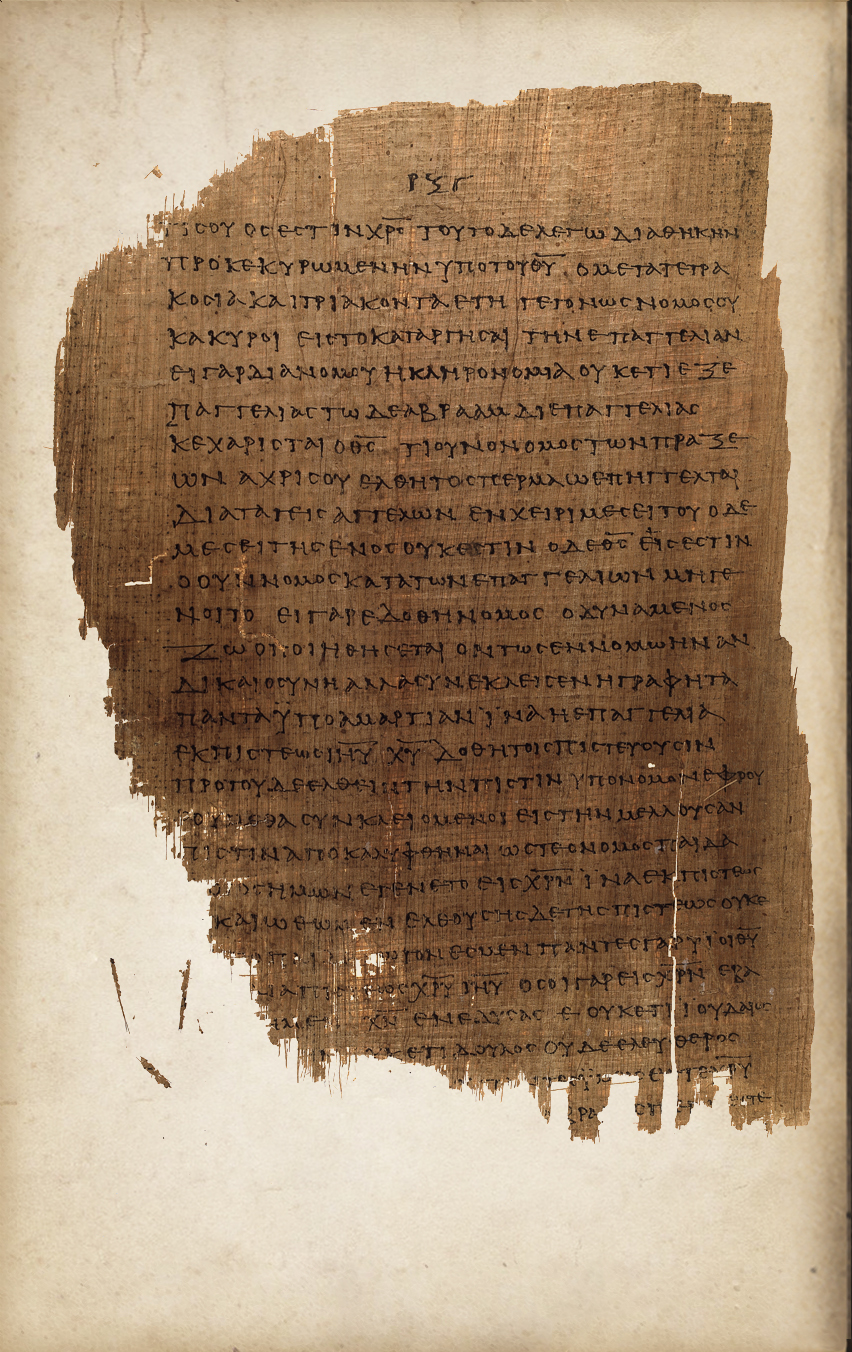 ΡΞΓ
ϹΟΥ ΟϹ ΕϹΤΙΝ ΧΡ̅Ϲ̅ ΤΟΥΤΟ ΔΕ ΛΕΓΩ ΔΙΑΘΗΚΗΝ
ΠΡΟΚΕΚΥΡΩΜΕΝΗΝ ΥΠΟ ΤΟΥ Θ̅Υ̅ Ο ΜΕΤΑ ΤΕΤΡΑ
ΚΟϹΙΑ ΚΑΙ ΤΡΙΑΚΟΝΤΑ ΕΤΗ ΓΕΓΟΝΩϹ ΝΟΜΟϹ ΟΥ
ΚΑΚΥΡΟΙ ΕΙϹ ΤΟ ΚΑΤΑΡΓΗϹΑΙ ΤΗΝ ΕΠΑΓΓΕΛΙΑΝ
ΕΙ ΓΑΡ ΔΙΑ ΝΟΜΟΥ Η ΚΛΗΡΟΝΟΜΙΑ ΟΥΚΕΤΙ ΕΞ Ε
ΠΑΓΓΕΛΙΑϹ ΤΩ ΔΕ ΑΒΡΑΑΜ ΔΙ ΕΠΑΓΓΕΛΙΑϹ
ΚΕΧΑΡΙϹΤΑΙ Ο Θ̅Ϲ̅ ΤΙ ΟΥΝ Ο ΝΟΜΟϹ ΤΩΝ ΠΡΑΞΕ
ΩΝ ΑΧΡΙϹ ΟΥ ΕΛΘΗ ΤΟ ϹΠΕΡΜΑ Ω ΕΠΗΓΓΕΛΤΑΙ
ΔΙΑΤΑΓΕΙϹ ΑΓΓΕΛΩΝ ΕΝ ΧΕΙΡΙ ΜΕϹΕΙΤΟΥ Ο ΔΕ
ΜΕϹΕΙΤΗϹ ΕΝΟϹ ΟΥΚ ΕϹΤΙΝ Ο ΔΕ Θ̅Ϲ̅ ΕΙϹ ΕϹΤΙΝ
Ο ΟΥΝ ΝΟΜΟϹ ΚΑΤΑ ΤΩΝ ΕΠΑΓΓΕΛΙΩΝ ΜΗ ΓΕ
ΝΟΙΤΟ ΕΙ ΓΑΡ ΕΔΟΘΗ ΝΟΜΟϹ Ο ΔΥΝΑΜΕΝΟϹ
ΟΝΤΩϹ ΕΝ ΝΟΜΩ ΗΝ ΑΝ
ΔΙΚΑΙΟϹΥΝΗ ΑΛΛΑ ϹΥΝΕΚΛΕΙϹΕΝ Η ΓΡΑΦΗ ΤΑ
ΠΑΝΤΑ ΫΠΟ ΑΜΑΡΤΙΑΝ ΪΝΑ Η ΕΠΑΓΓΕΛΙΑ
ΕΚ ΠΙϹΤΕΩϹ Ι̅Η̅Υ̅ Χ̅Υ̅ ΔΟΘΗ ΤΟΙϹ ΠΙϹΤΕΥΟΥϹΙΝ
ΠΡΟ ΤΟΥ ΔΕ ΕΛΘΕΙΝ ΤΗΝ ΠΙϹΤΙΝ ΥΠΟ ΝΟΜΟΝ ΕΦΡΟΥ
ΡΟΥΜΕΘΑ ϹΥΝΚΛΕΙΟΜΕΝΟΙ ΕΙϹ ΤΗΝ ΜΕΛΛΟΥϹΑΝ
ΠΙϹΤΙΝ ΑΠΟΚΑΛΥΦΘΗΝΑΙ ΩϹΤΕ Ο ΝΟΜΟϹ ΠΑΙΔΑ
ΗΜΩΝ ΕΓΕΝΕΤΟ ΕΙϹ Χ̅Ρ̅Ν̅ ΪΝΑ ΕΚ ΠΙϹΤΕΩϹ
ΔΙΚΑΙΩΘΩΜΕΝ ΕΛΘΟΥϹΗϹ ΔΕ ΤΗϹ ΠΙϹΤΕΩϹ ΟΥΚΕ
ΕϹΜΕΝ ΠΑΝΤΕϹ ΓΑΡ ΥΙΟΙ Θ̅Υ̅
Χ̅Ρ̅Υ̅ Ι̅Η̅Υ̅ ΟϹΟΙ ΓΑΡ ΕΙϹ Χ̅Ρ̅Ν̅ ΕΒΑ
Χ̅Ν̅ ΕΝΕΔΥϹΑϹΘΕ ΟΥΚΕΤΙ ΙΟΥΔΑΙΟϹ
ΟΥΚΕΤΙ ΔΟΥΛΟϹ ΟΥΔΕ ΕΛΕΥΘΕΡΟϹ